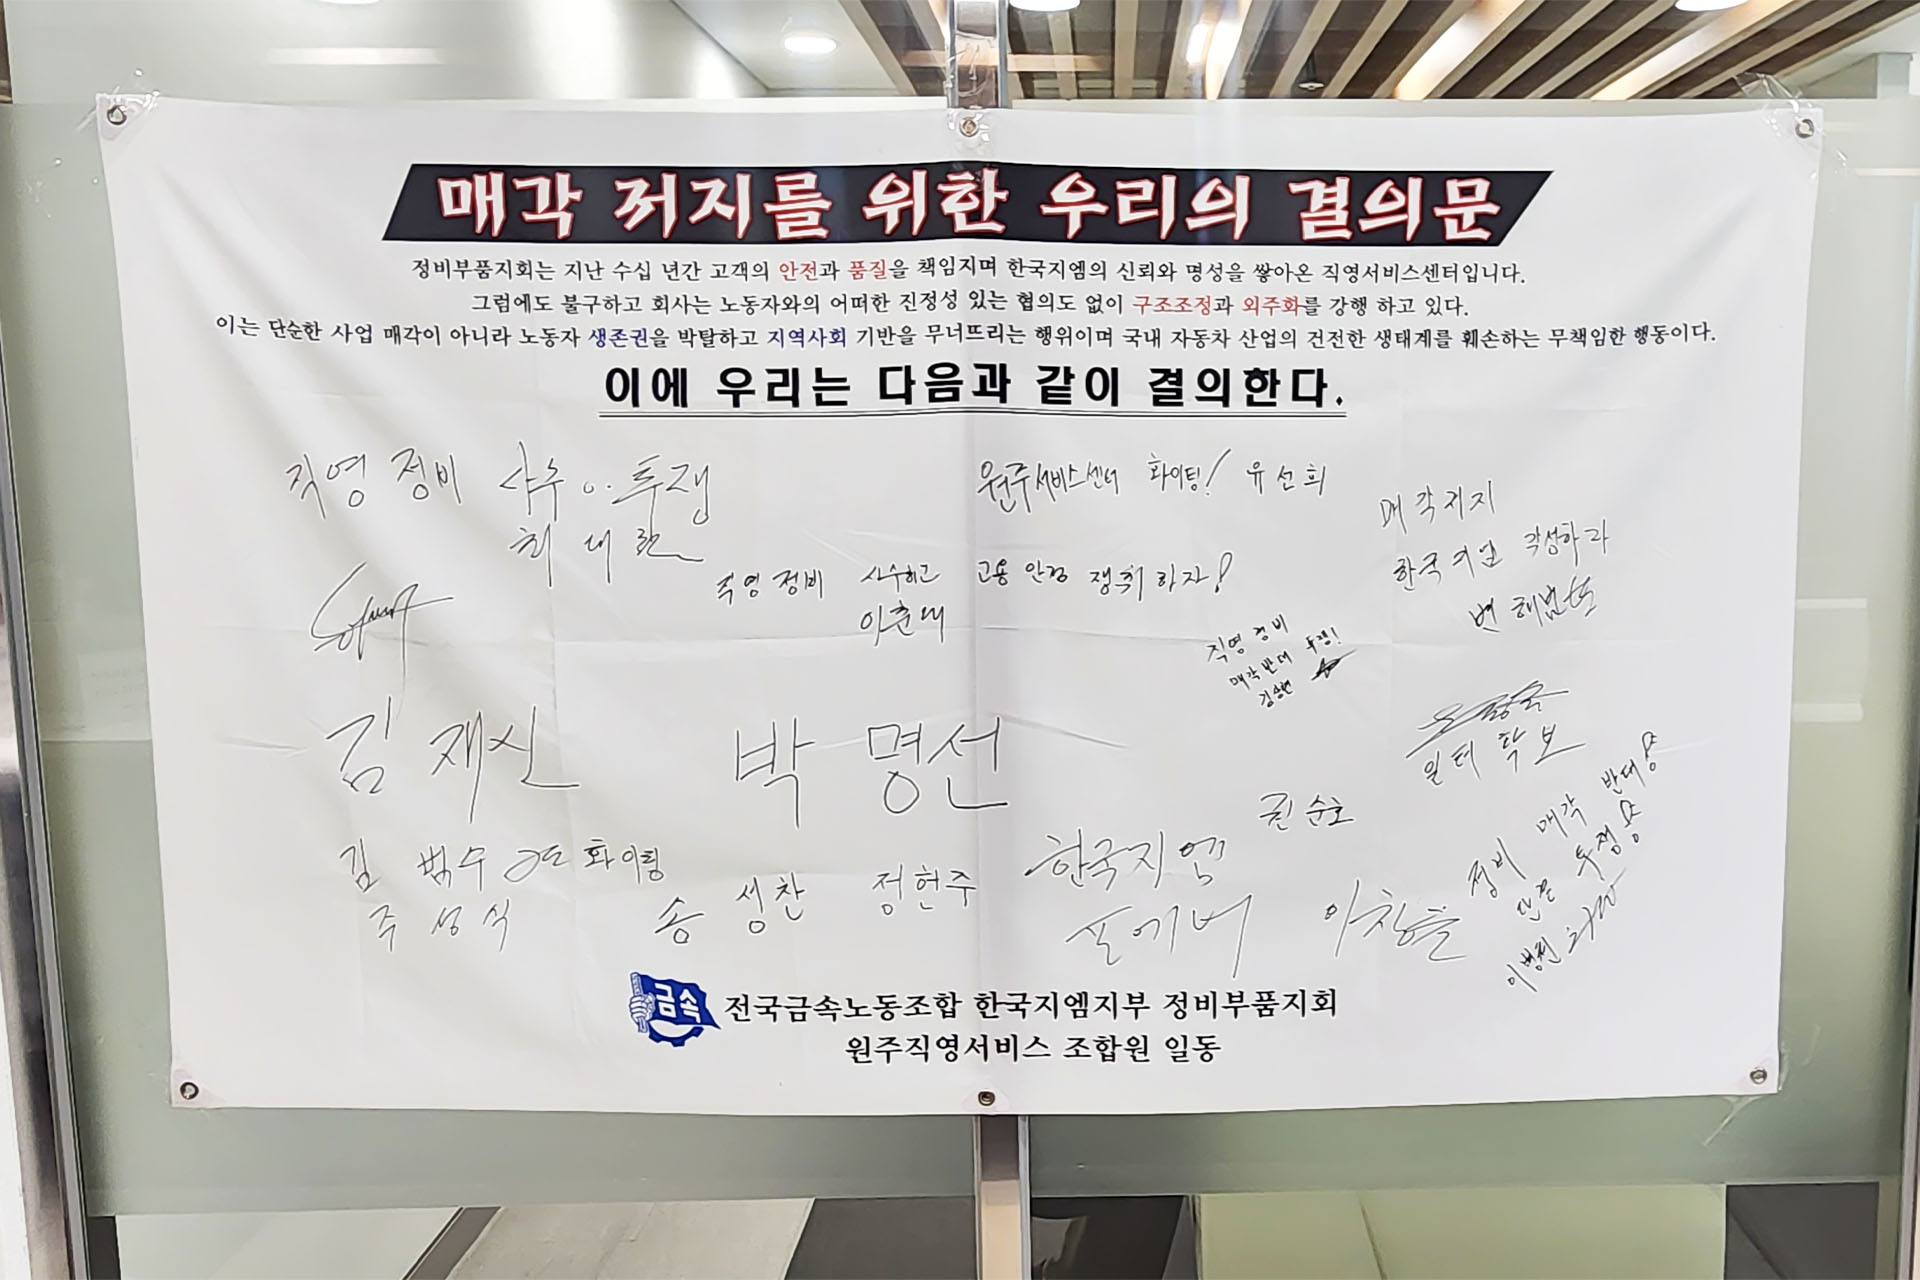 매각 저지를 위한 우리의 결의문
정비부품지회는 지난 수십 년간 고객의 안전과 품질을 책임지며 한국지엠의 신뢰와 명성을 쌓아온 직영서비스센터입니다.
그럼에도 불구하고 회사는 노동자와의 어떠한 진정성 있는 협의도 없이 구조조정과 외주화를 강행 하고 있다.
이는 단순한 사업 매각이 아니라 노동자 생존권을 박탈하고 지역사회 기반을 무너뜨리는 행위이며 국내 자동차 산업의 건전한 생태계를 훼손하는 무책임한 행동이다.
이에 우리는 다음과 같이 결의한다.
직영 정비 사수.. 투쟁
원주서비스센터 화이팅! 유선희
매각저지
한국지엠 각성하라
직영정비 사수하고 고용안정 쟁취하자!
이춘대
직영 정비
매각반대 투쟁!
김재신
박명선
일터 확보
권순호
김범수 화이팅
주성식
송성찬
정현주
한국지엠
포에버
이창훈
정비 매각 반대!
투쟁!
금속
전국금속노동조합 한국지엠지부 정비부품지회
원주직영서비스 조합원 일동